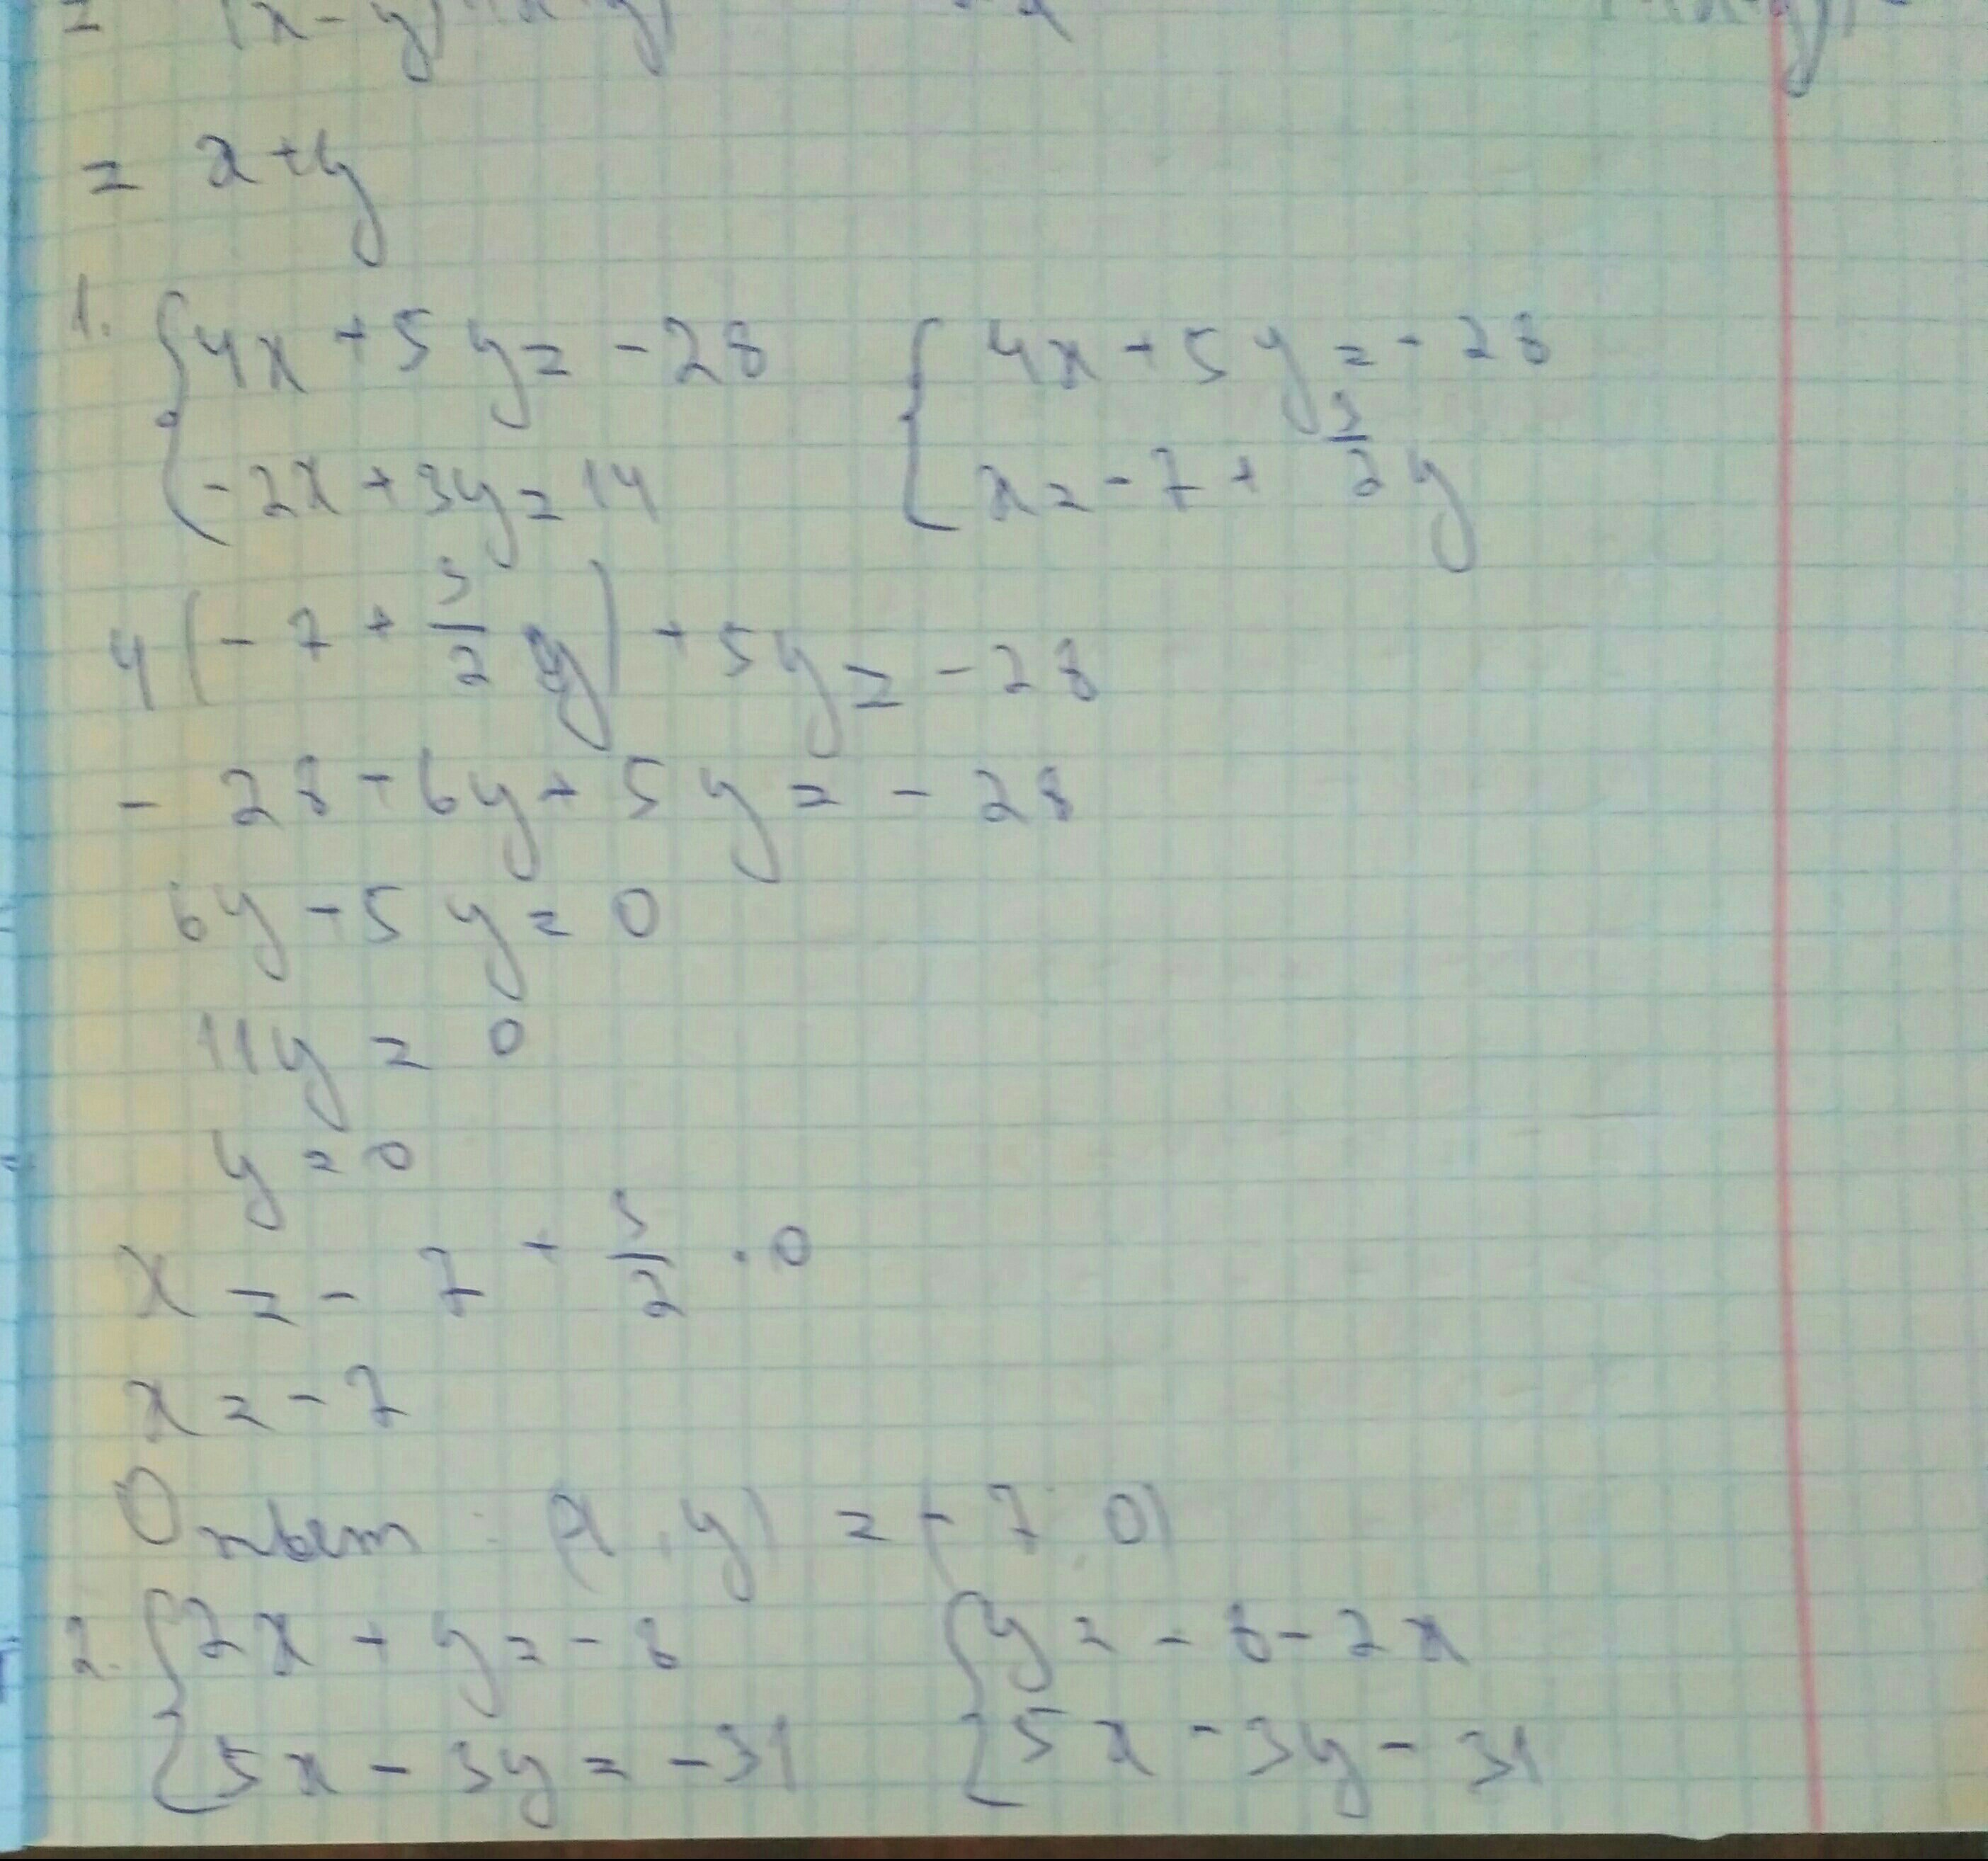 = x+y
1. {4x + 5y = -28 {4x + 5y = -28
{-2x + 3y = 14 {x = -7 + 3/2 y
4(-7 + 3/2 y) + 5y = -28
- 28 + 6y + 5y = - 28
6y + 5y = 0
11y = 0
y = 0
x = - 7 + 3/2 · 0
x = - 7
Ответ: (x, y) = (-7, 0)
2. {2x + y = - 8 {y = - 8 - 2x
{5x - 3y = - 31 {5x - 3y - 31